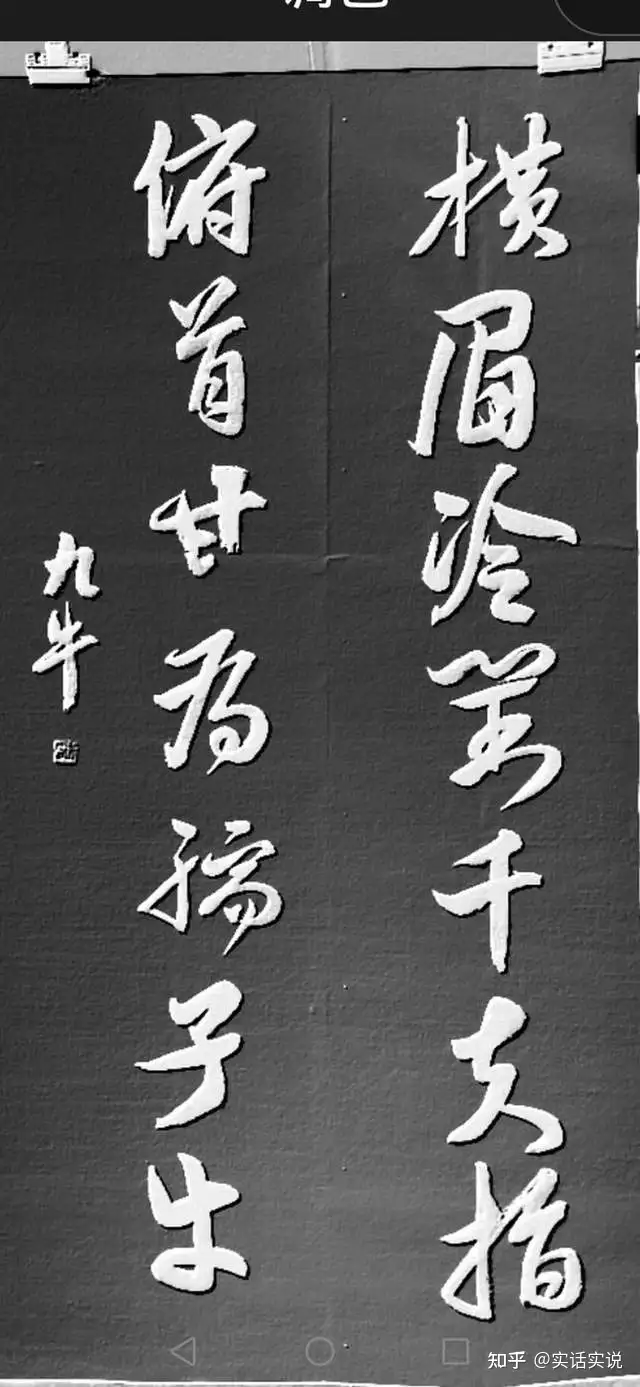 横眉冷對千夫指
俯首甘為孺子牛
九牛
知乎 @实话实说